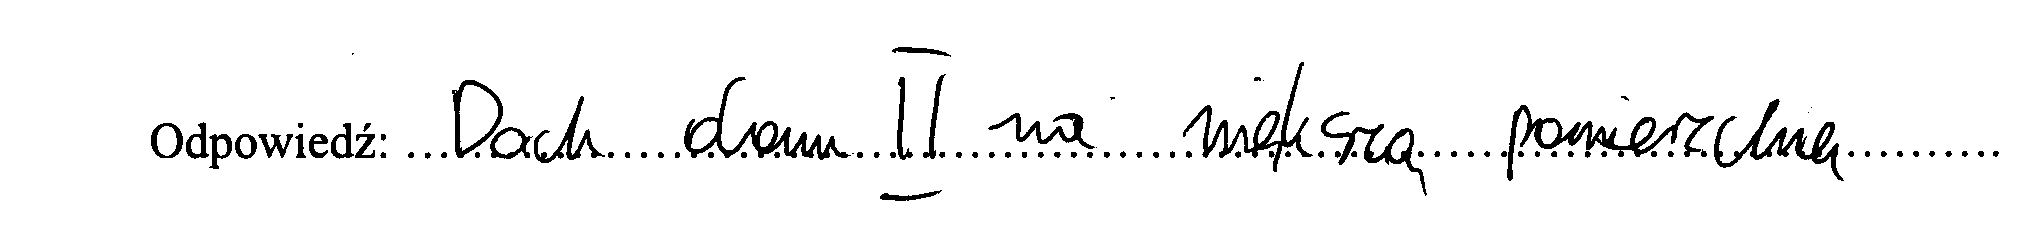 Odpowiedź: Dach domu II ma większą powierzchnię